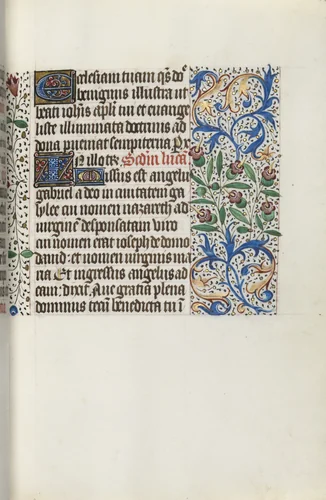 Ecclesiam tuam qs dne
benignus illustra ut
beati iohis apli tui et euange
liste illuminata doctrinis ad
dona perueniat sempiterna Per
In illo tpr Scdm lucam
Missus est angelus
gabriel a deo in ciuitatem ga
lylee cui nomen nazareth ad
uirginem desponsatam uiro
cui nomen erat ioseph de domo
dauid et nomen uirginis ma
ria Et ingressus angelus ad
eam dixit Aue gratia plena
dominus tecum benedicta tu in